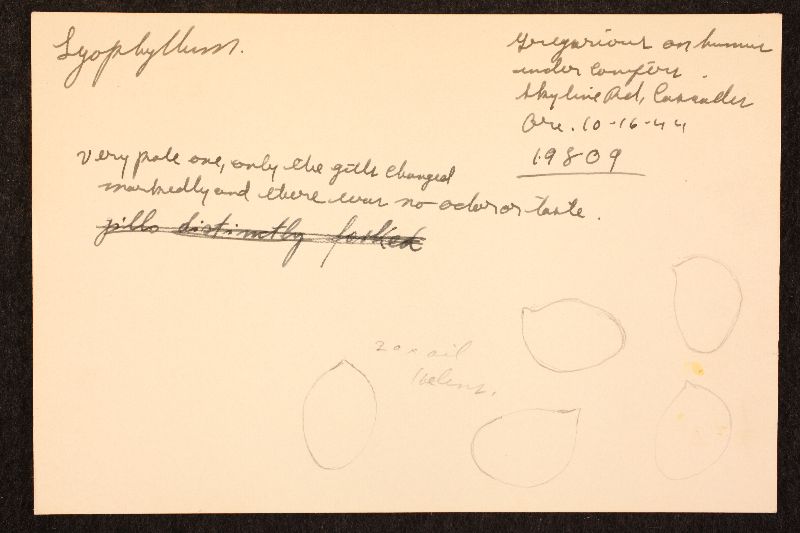 Lyophyllum.
Gregarious on humus
under conifers.
Skyline Rd, Cascades
Ore. 10-16-44
19809
Very pale one, only the gills changed
markedly and there was no odor or taste.
gills distinctly forked
20x oil